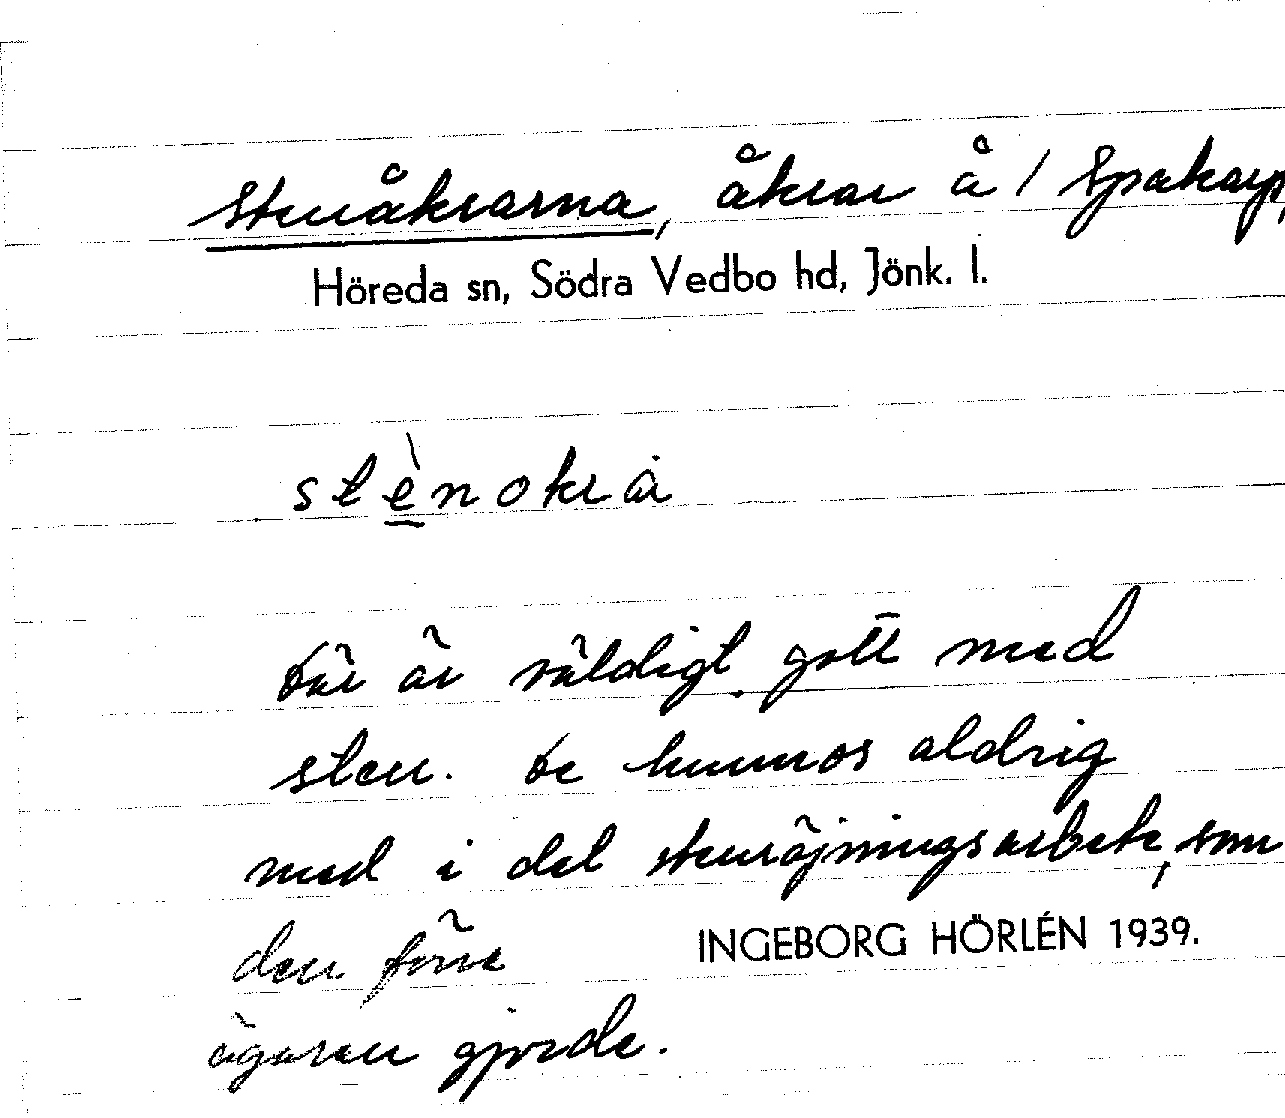 Stenåkrarna, åkrar å / Spakarp,
Höreda sn, Södra Vedbo hd, Jönk. l.
stènokrȧ
där är väldigt gott med
sten. de hunnos aldrig
med i det stenröjningsarbete, som
den förre
INGEBORG HÖRLÉN 1939.
ägaren gjorde.